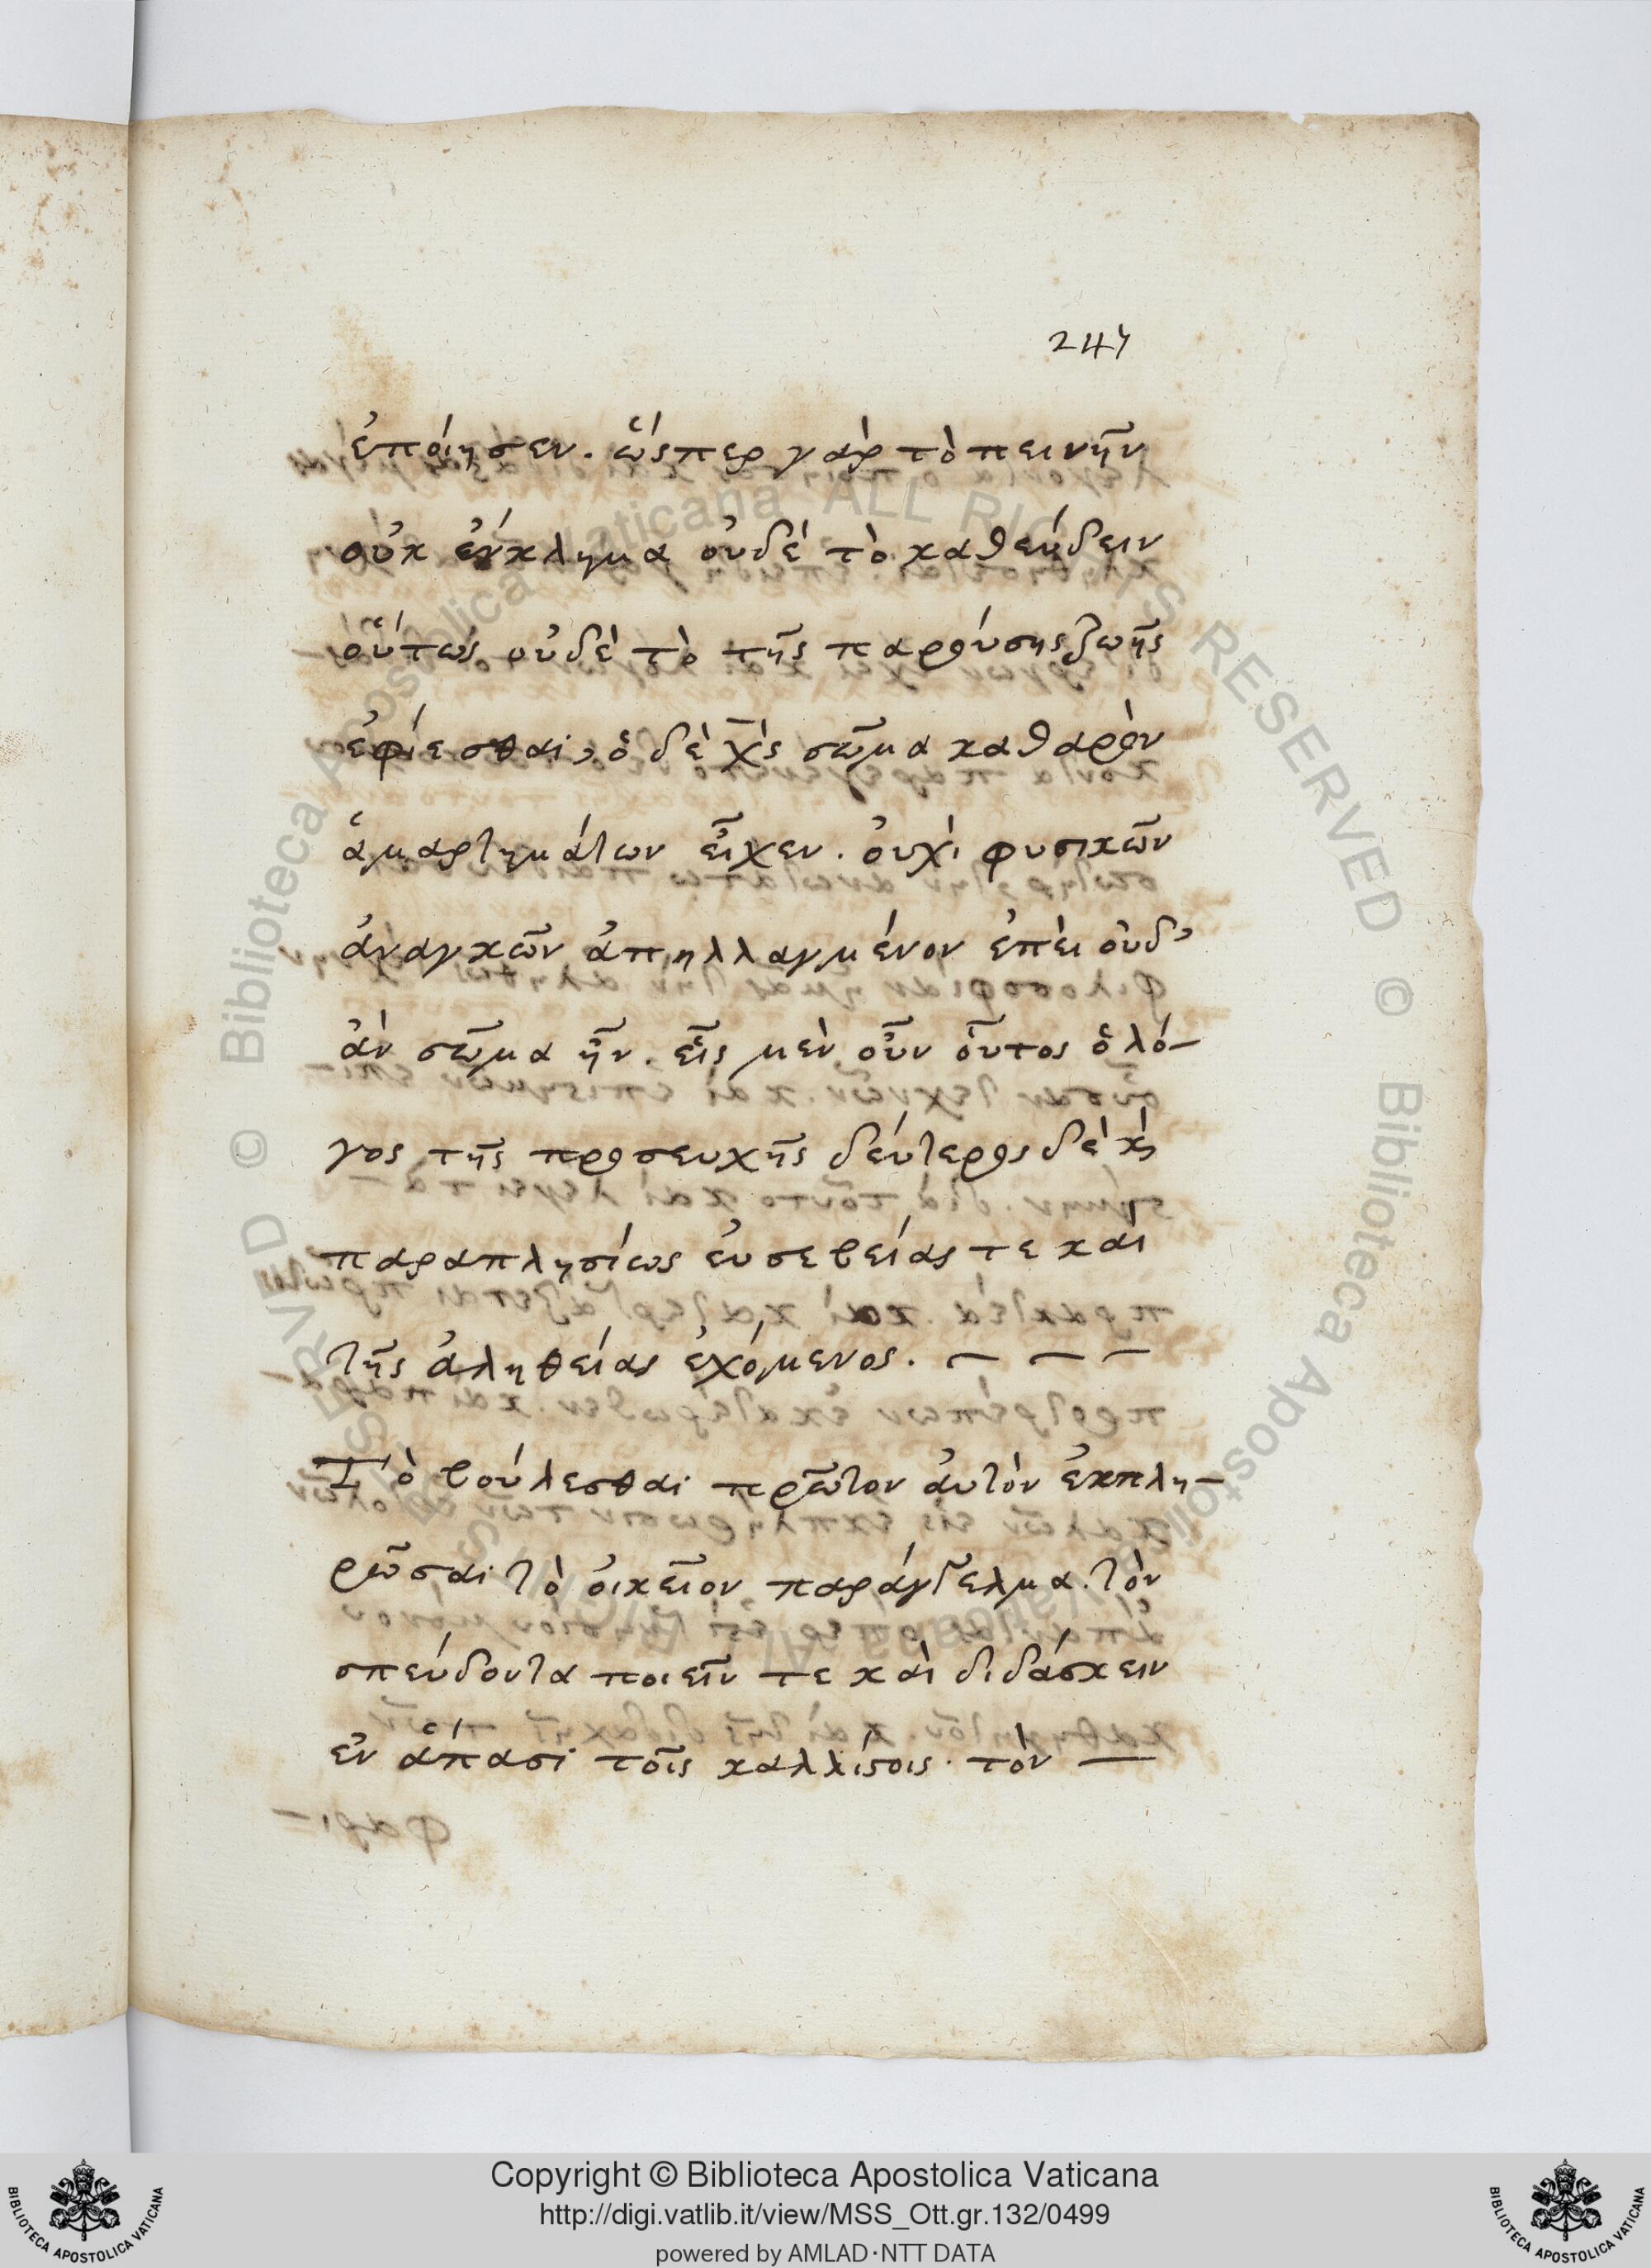 247
ἐποίησεν. ὥσπερ γὰρ τὸ πεινῆν
οὐκ ἔγκλημα οὐδὲ τὸ καθεύδειν
οὕτως οὐδὲ τὸ τῆς παρούσης ζωῆς
ἐφίεσθαι, ὁ δὲ χ̅ς̀ σῶμα καθαρὸν
ἁμαρτημάτων εἶχεν. ὀυχὶ φυσικῶν
ἀναγκῶν ἀπηλλαγμένον ἐπεὶ οὐδ᾽
ἂν σῶμα ἦν. εἷς μὲν οὖν οὗτος ὁ λό-
γος τῆς προσευχῆς δεύτερος δὲ ϗ̀
παραπλησίως ἐυσεβείας τε καὶ
τῆς ἀληθείας ἐχόμενος. — — —
Τὸ βούλεσθαι πρῶτον ἀυτὸν ἐκπλη-
ρῶσαι τὸ ὀικεῖον παράγγελμα. τὸν
σπεύδοντα ποιεῖν τε καὶ διδάσκειν
ἐν ἅπασι τοῖς καλλίϛοις. τὸν —
Copyright © Biblioteca Apostolica Vaticana
http://digi.vatlib.it/view/MSS_Ott.gr.132/0499
powered by AMLAD·NTT DATA
BIBLIOTECA APOSTOLICA VATICANA
BIBLIOTECA APOSTOLICA VATICANA